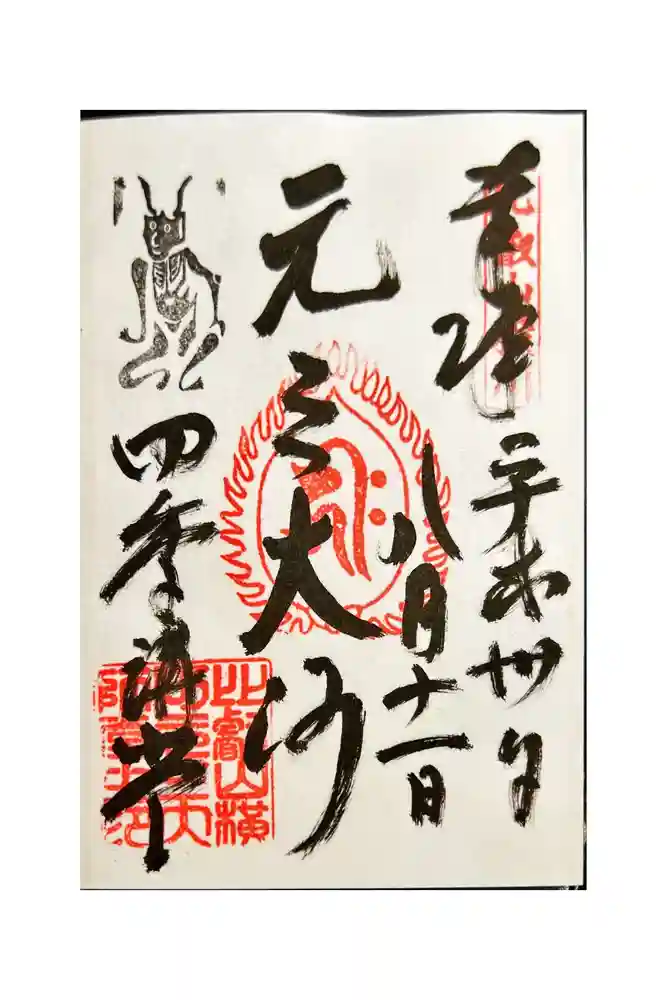 奉拝 平成卅年
八月十一日
元三大師
四季講堂
比叡山横